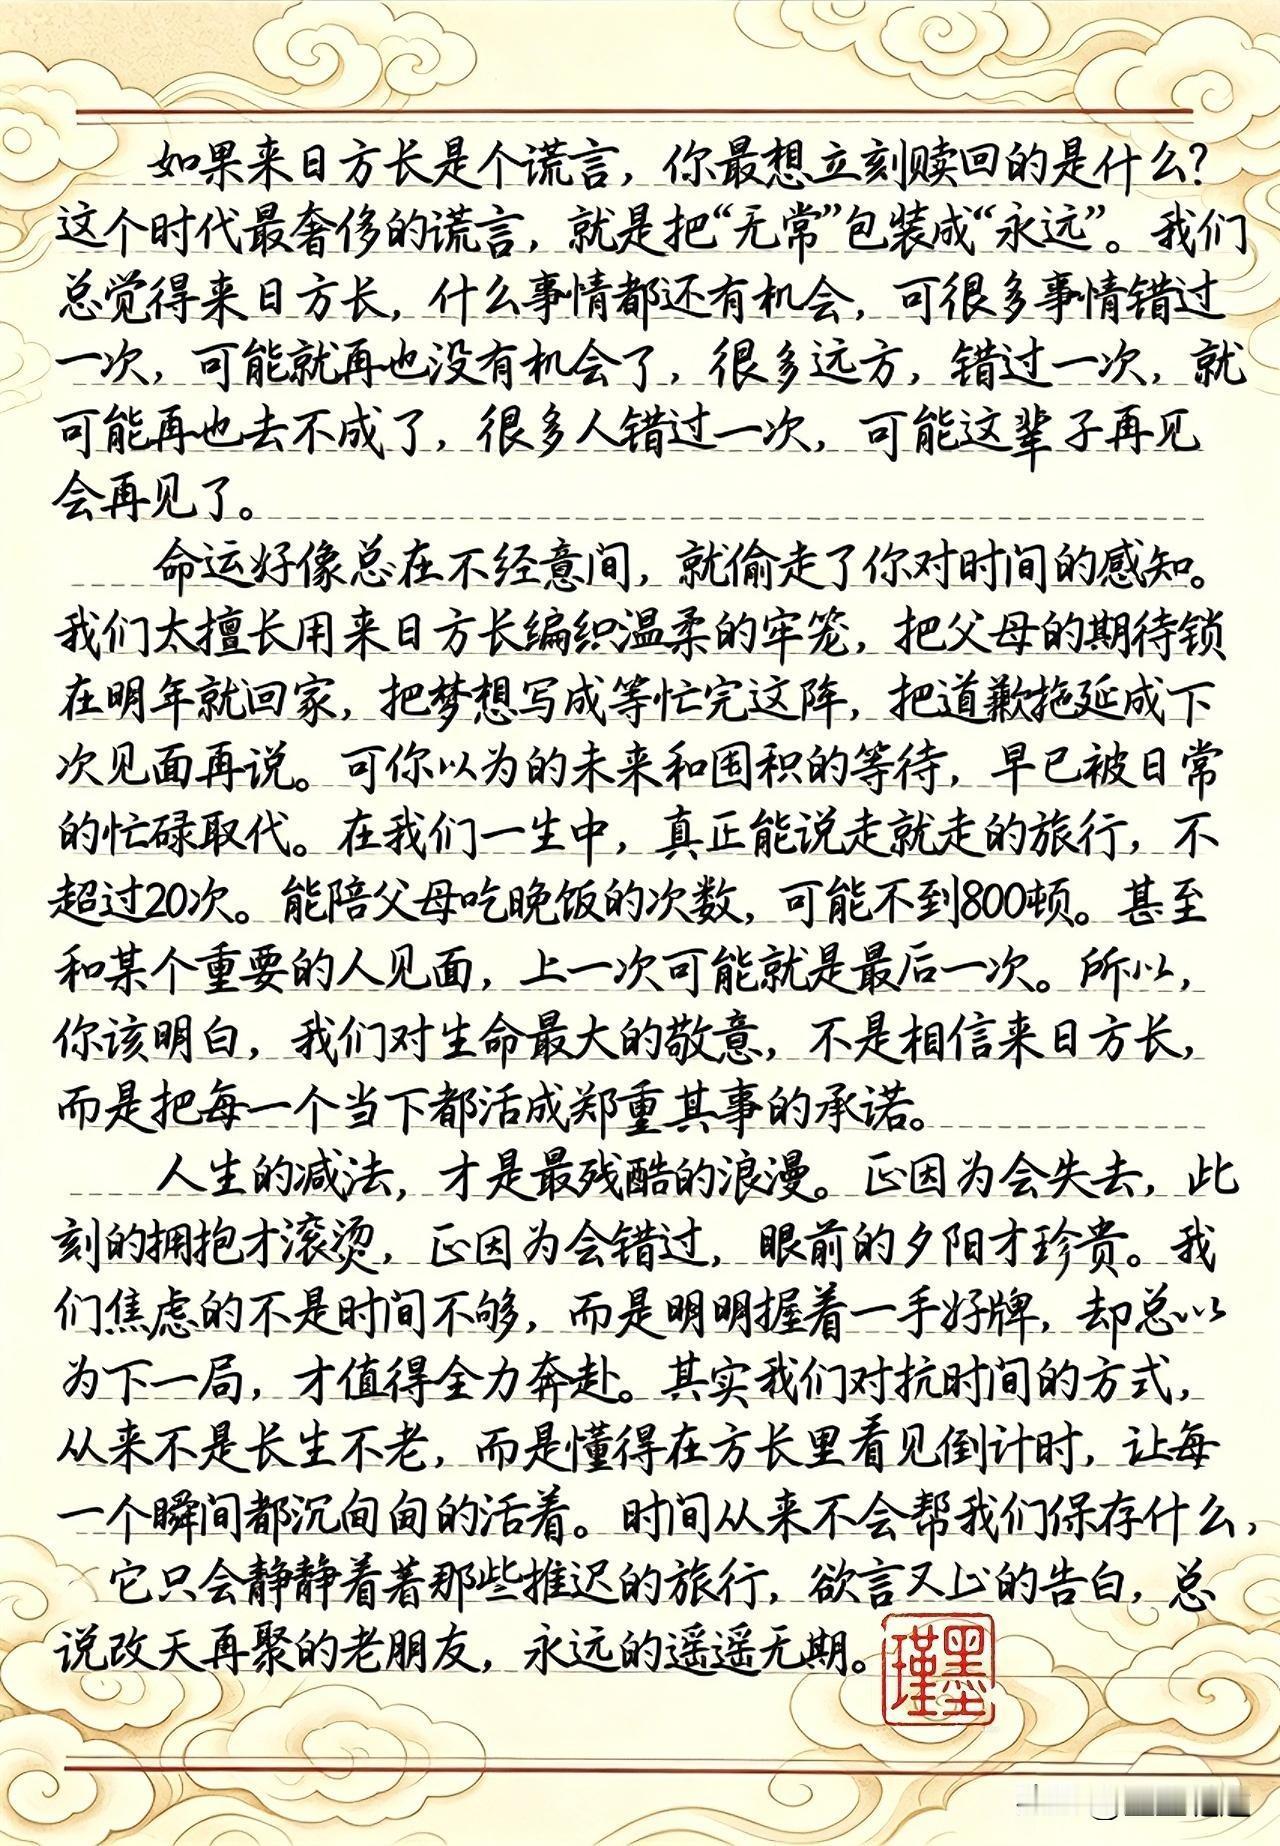 如果来日方长是个谎言，你最想立刻赎回的是什么？
这个时代最奢侈的谎言，就是把“无常”包装成“永远”。我们
总觉得来日方长，什么事情都还有机会，可很多事情错过
一次，可能就再也没有机会了，很多远方，错过一次，就
可能再也去不成了，很多人错过一次，可能这辈子再见
会再见了。
命运好像总在不经意间，就偷走了你对时间的感知。
我们太擅长用来日方长编织温柔的牢笼，把父母的期待锁
在明年就回家，把梦想写成等忙完这阵，把道歉拖延成下
次见面再说。可你以为的未来和囤积的等待，早已被日常
的忙碌取代。在我们一生中，真正能说走就走的旅行，不
超过20次。能陪父母吃晚饭的次数，可能不到800顿。甚至
和某个重要的人见面，上一次可能就是最后一次。所以，
你该明白，我们对生命最大的敬意，不是相信来日方长，
而是把每一个当下都活成郑重其事的承诺。
人生的减法，才是最残酷的浪漫。正因为会失去，此
刻的拥抱才滚烫，正因为会错过，眼前的夕阳才珍贵。我
们焦虑的不是时间不够，而是明明握着一手好牌，却总以
为下一局，才值得全力奔赴。其实我们对抗时间的方式，
从来不是长生不老，而是懂得在方长里看见倒计时，让每
一个瞬间都沉甸甸的活着。时间从来不会帮我们保存什么，
它只会静静看着那些推迟的旅行，欲言又止的告白，总
说改天再聚的老朋友，永远的遥遥无期。
墨瑾